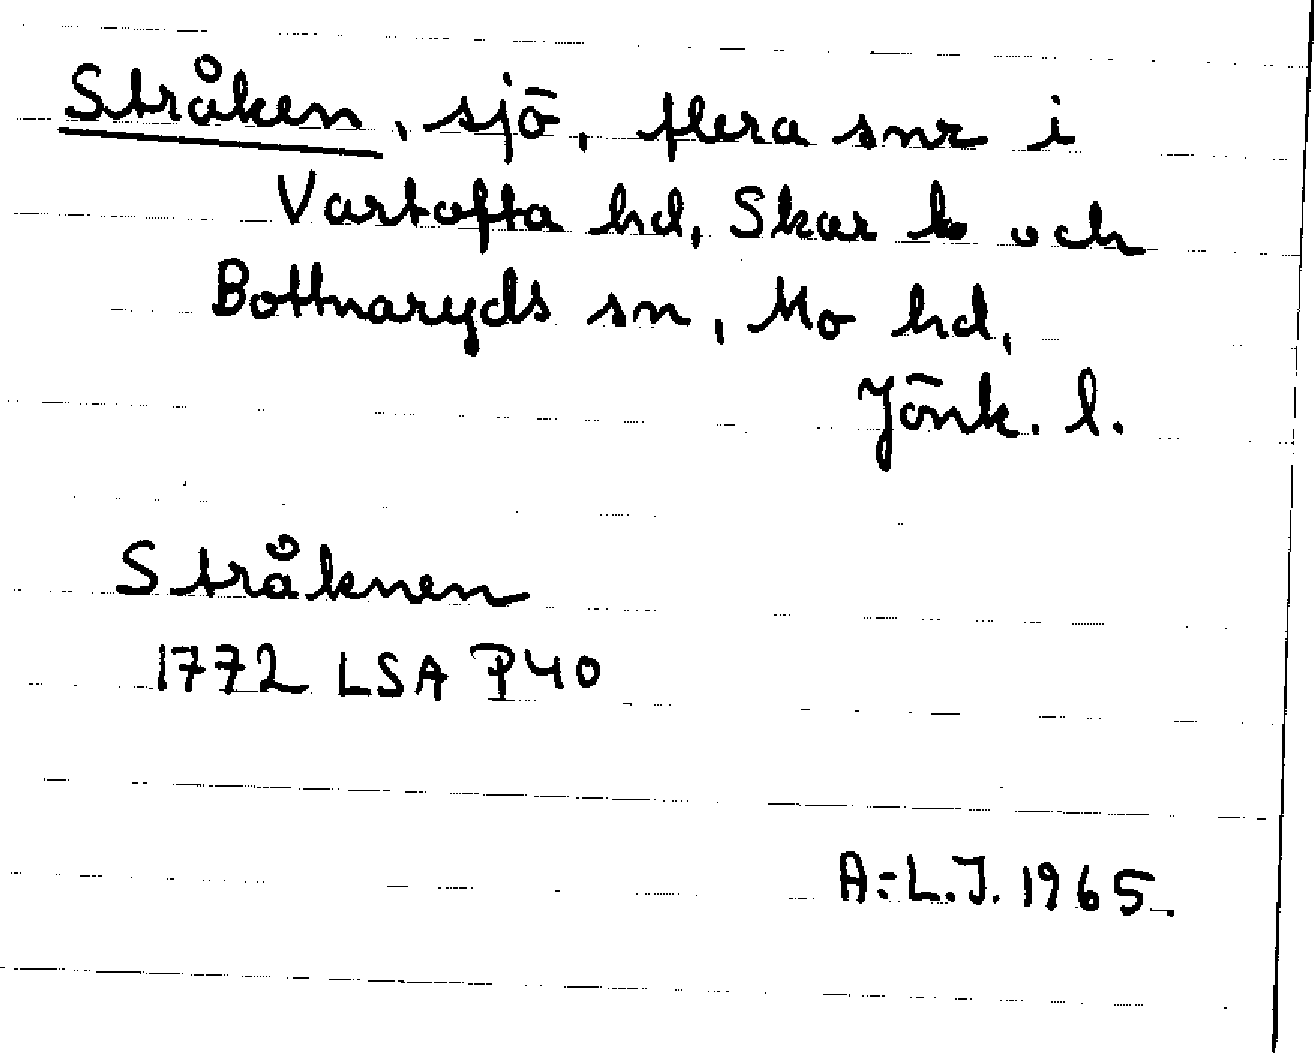 Stråken, sjö, flera snr i
Vartofta hd, Skar l. och
Bottnaryds sn, Mo hd,
Jönk. l.
Stråknen
1772 LSA P40
A:L.J. 1965.